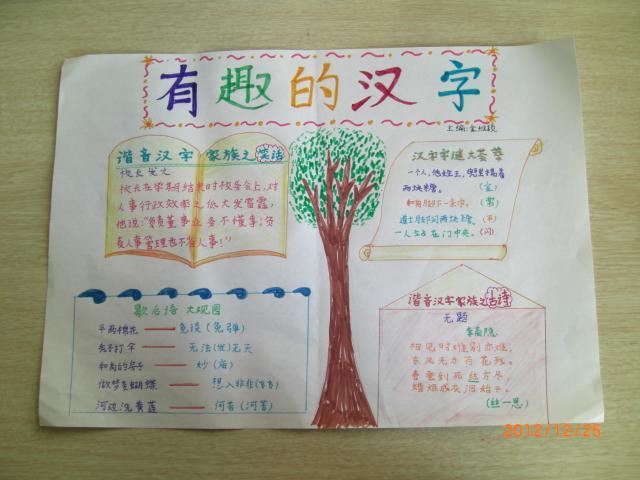 有趣的汉字
主编:金
谐音汉字家族之笑话
校长发言
校长在学期结束时校务会上,对
人事行政效率之低大发雷霆,
他说:"负责董事业务不懂事;负
责人事管理也不省人事!"
汉字字谜大荟萃
一个人,他姓王,兜里揣着
两块糖。 (金)
和尚脚下一条巾。 (常)
道士腰间两块糖。 (平)
一人站在门中央。 (闪)
歇后语 大观园
平两棉花——免谈(免弹)
秃子打伞——无法(发)无天
和尚的房子——妙(庙)
做梦变蝴蝶——想入非非(飞飞)
河边洗黄莲——何苦(河苦)
谐音汉字家族之古诗
无题
李商隐
相见时难别亦难,
东风无力百花残。
春蚕到死丝方尽,
蜡炬成灰泪始干。
(丝—思)
2012/12/25